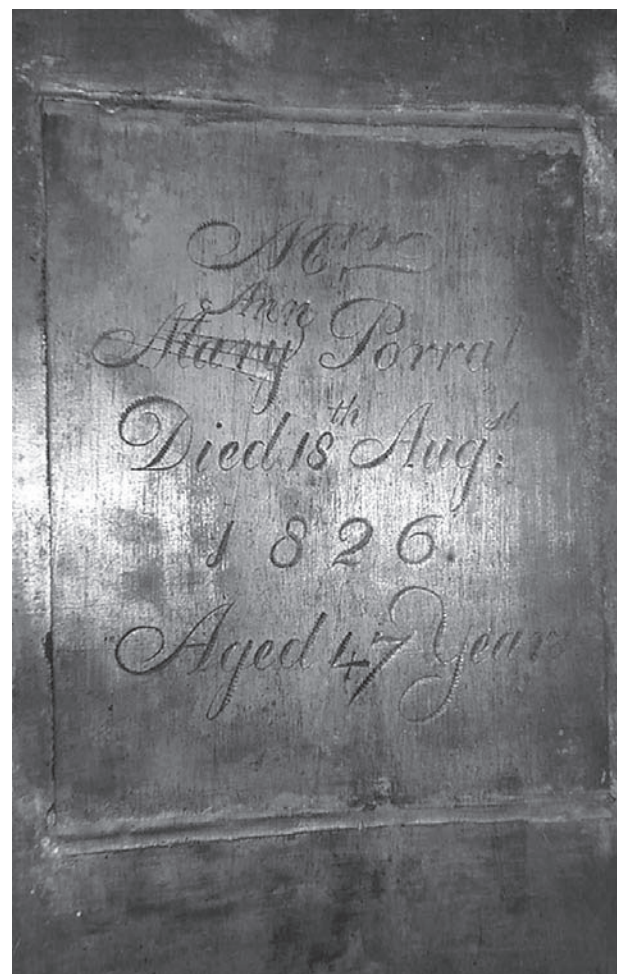 Mrs
Ann
Mary Porral
Died 18th Augst:
1826.
Aged 47 Years